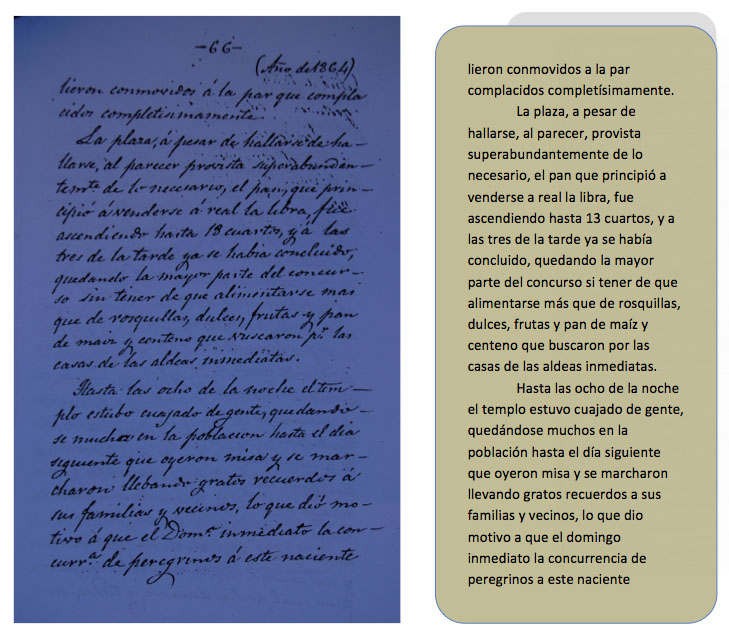 -66-
(Año de 1864)
lieron conmovidos á la par que compla
cidos completisimamente.
La plaza, á pesar de hallarse de ha-
llarse, al parecer provista superabundan-
temte de lo necesario, el pan, que prin-
cipió á venderse á real la libra, fue
ascendiendo hasta 13 cuartos, y á las
tres de la tarde ya se habia concluido,
quedando la mayor parte del concur-
so sin tener de que alimentarse mas
que de rosquillas, dulces, frutas y pan
de maiz y centeno que vuscaron pr. las
casas de las aldeas inmediatas.
Hasta las ocho de la noche el tem-
plo estubo cuajado de gente, quedando-
se muchos en la poblacion hasta el dia
siguiente que oyeron misa y se mar-
charon llebando gratos recuerdos á
sus familias y vecinos, lo que dió mo-
tivo á que el Domo. inmediato la con-
curra. de peregrinos á este naciente
lieron conmovidos a la par
complacidos completísimamente.
La plaza, a pesar de
hallarse, al parecer, provista
superabundantemente de lo
necesario, el pan que principió a
venderse a real la libra, fue
ascendiendo hasta 13 cuartos, y a
las tres de la tarde ya se había
concluido, quedando la mayor
parte del concurso si tener de que
alimentarse más que de rosquillas,
dulces, frutas y pan de maíz y
centeno que buscaron por las
casas de las aldeas inmediatas.
Hasta las ocho de la noche
el templo estuvo cuajado de gente,
quedándose muchos en la
población hasta el día siguiente
que oyeron misa y se marcharon
llevando gratos recuerdos a sus
familias y vecinos, lo que dio
motivo a que el domingo
inmediato la concurrencia de
peregrinos a este naciente